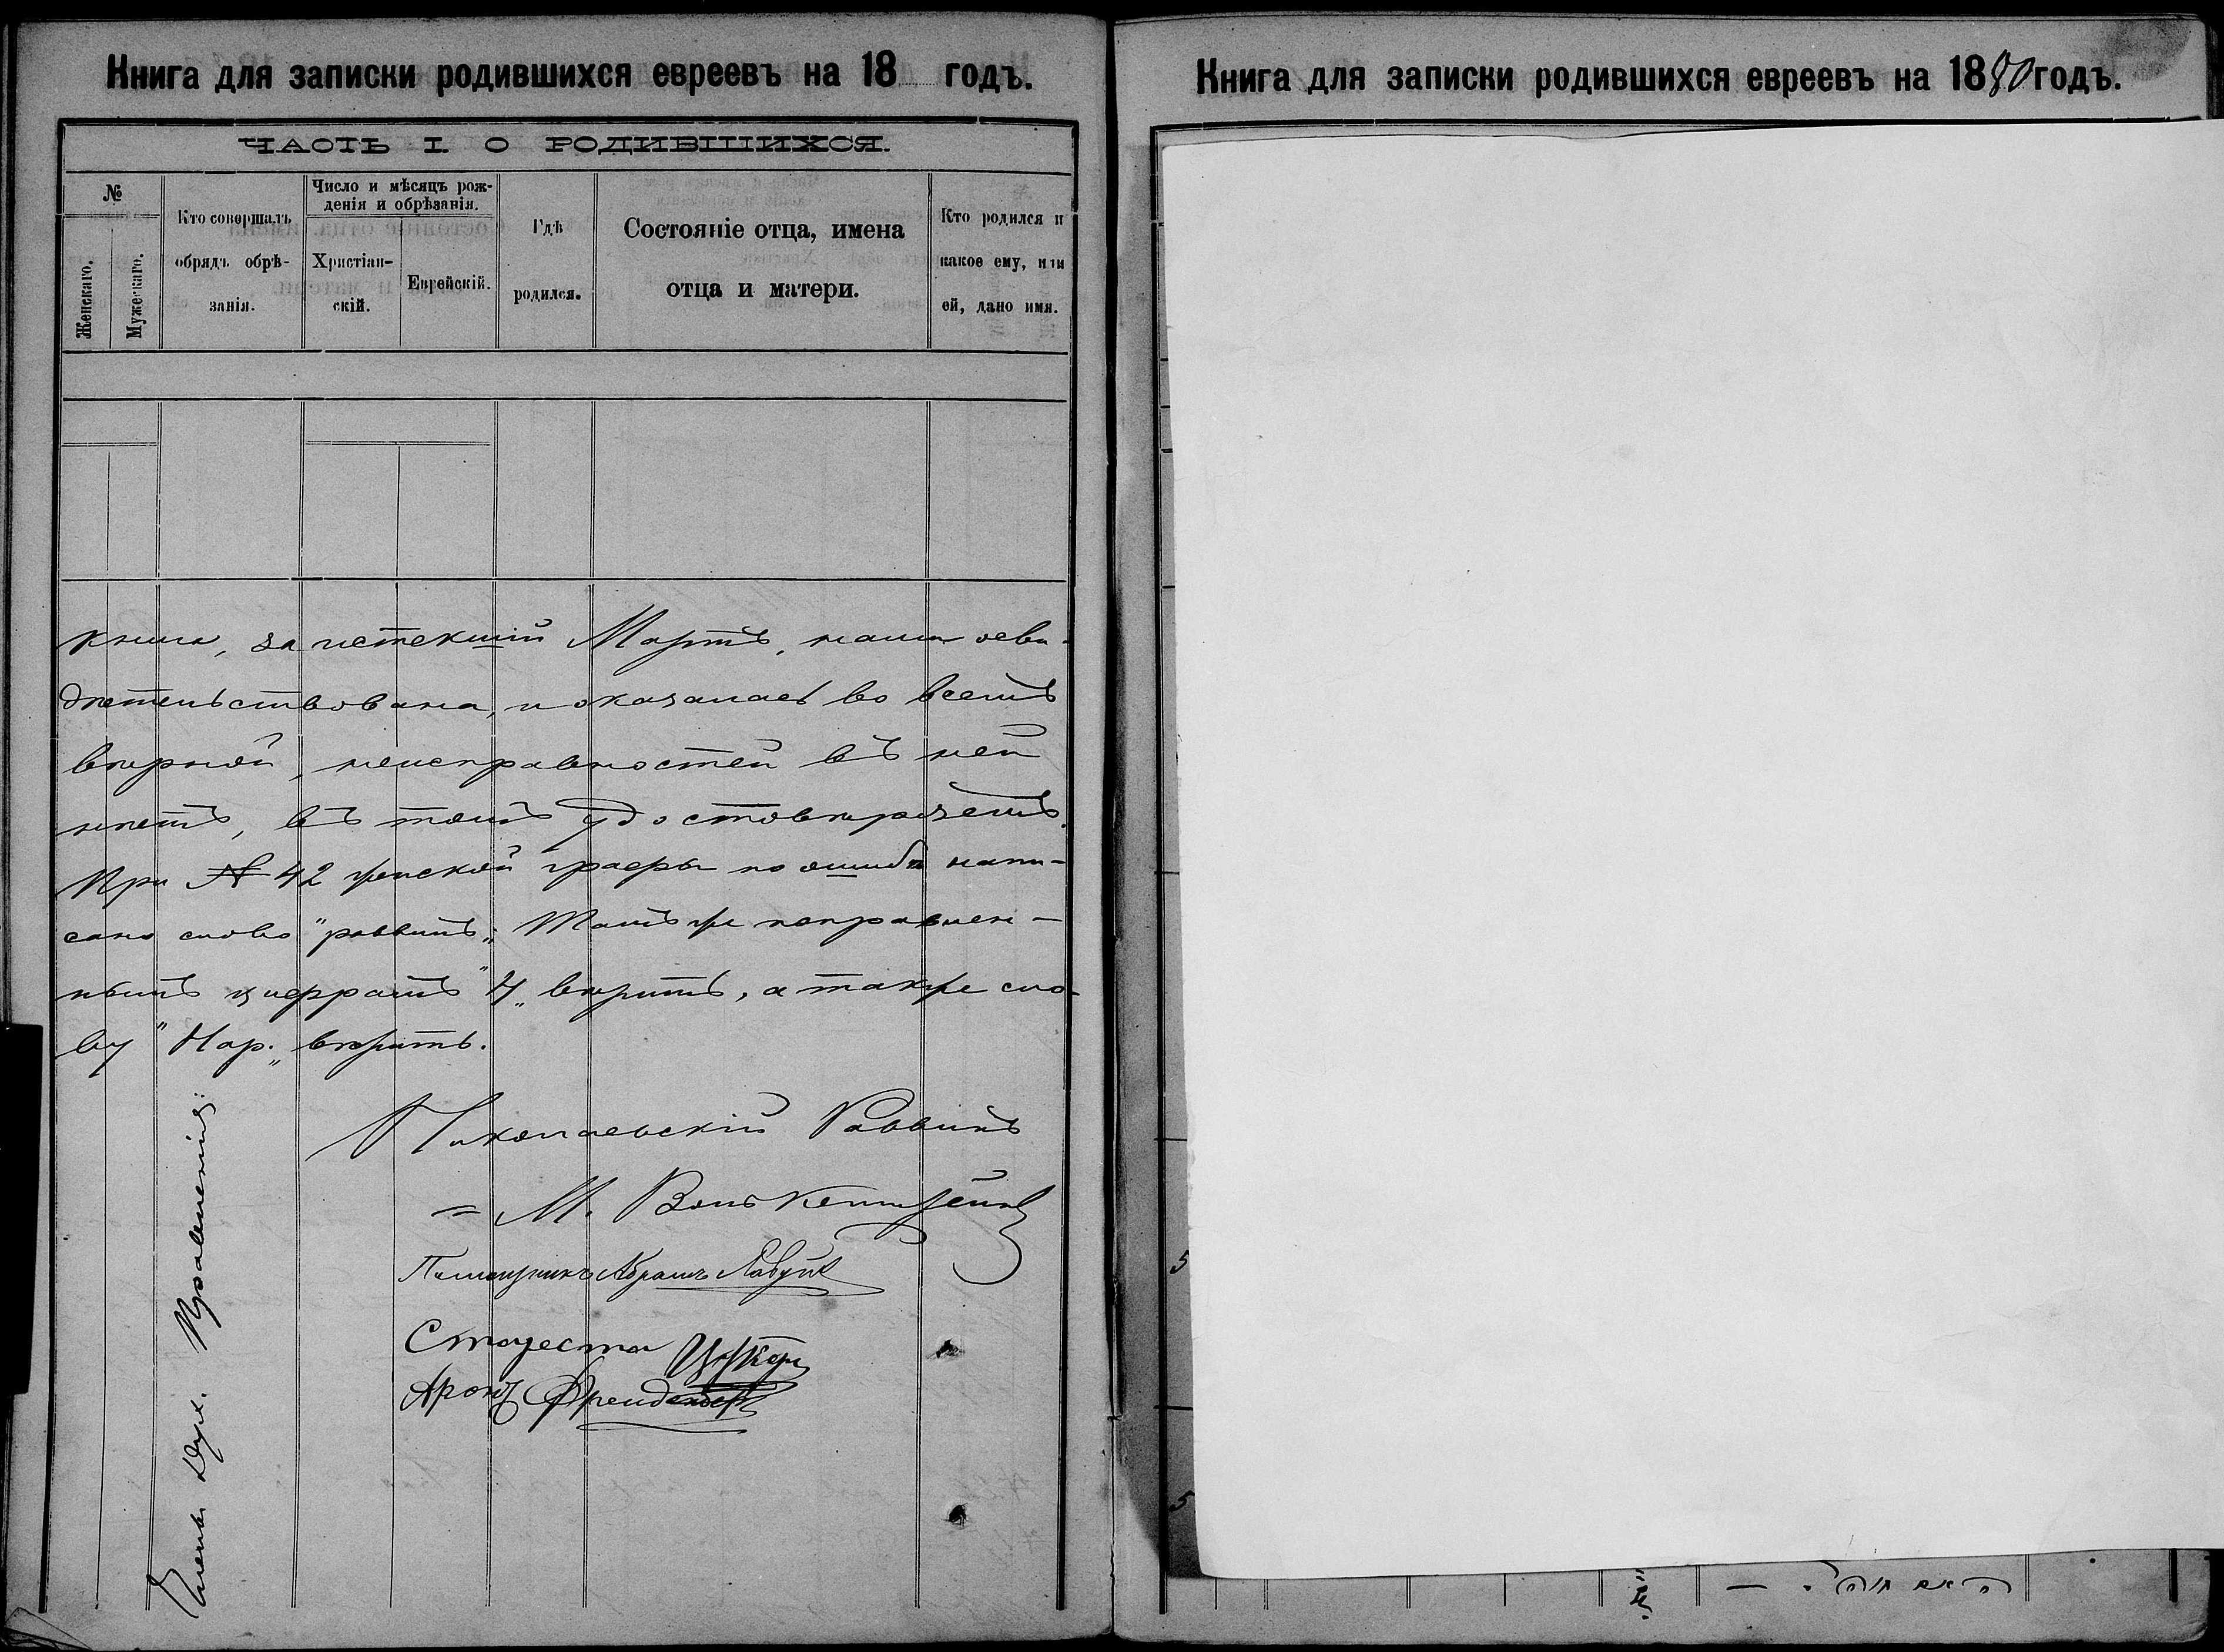 Книга для записки родившихся евреевъ на 18 годъ.
ЧАСТЬ I О РОДИВШИХСЯ.
№
Женскаго.
Мужескаго.
Кто совершалъ
обрядъ обрѣ-
занія.
Число и мѣсяцъ рож-
денія и обрѣзанія.
Христіан-
скій.
Еврейскій.
Гдѣ
родился.
Состояніе отца, имена
отца и матери.
Кто родился и
какое ему, или
ей, дано имя.
книга, за истекшій Мартъ, нами осви-
дѣтельствована, и оказалась во всемъ
вѣрной, неисправностей въ ней
нѣтъ, въ томъ удостовѣряемъ.
При № 42 женской графы по ошибкѣ напи-
сано слово "раввинъ„. Тамъ же поправлен-
нымъ цифрамъ "4„ вѣрить, а также сло-
ву "Нар.„ вѣрить.
Николаевскій Раввинъ
М. Волькенштейнъ
Помощникъ Абрамъ
Староста
Аронъ
Члены Дух. Правленія:
Книга для записки родившихся евреевъ на 1880 годъ.
5
5